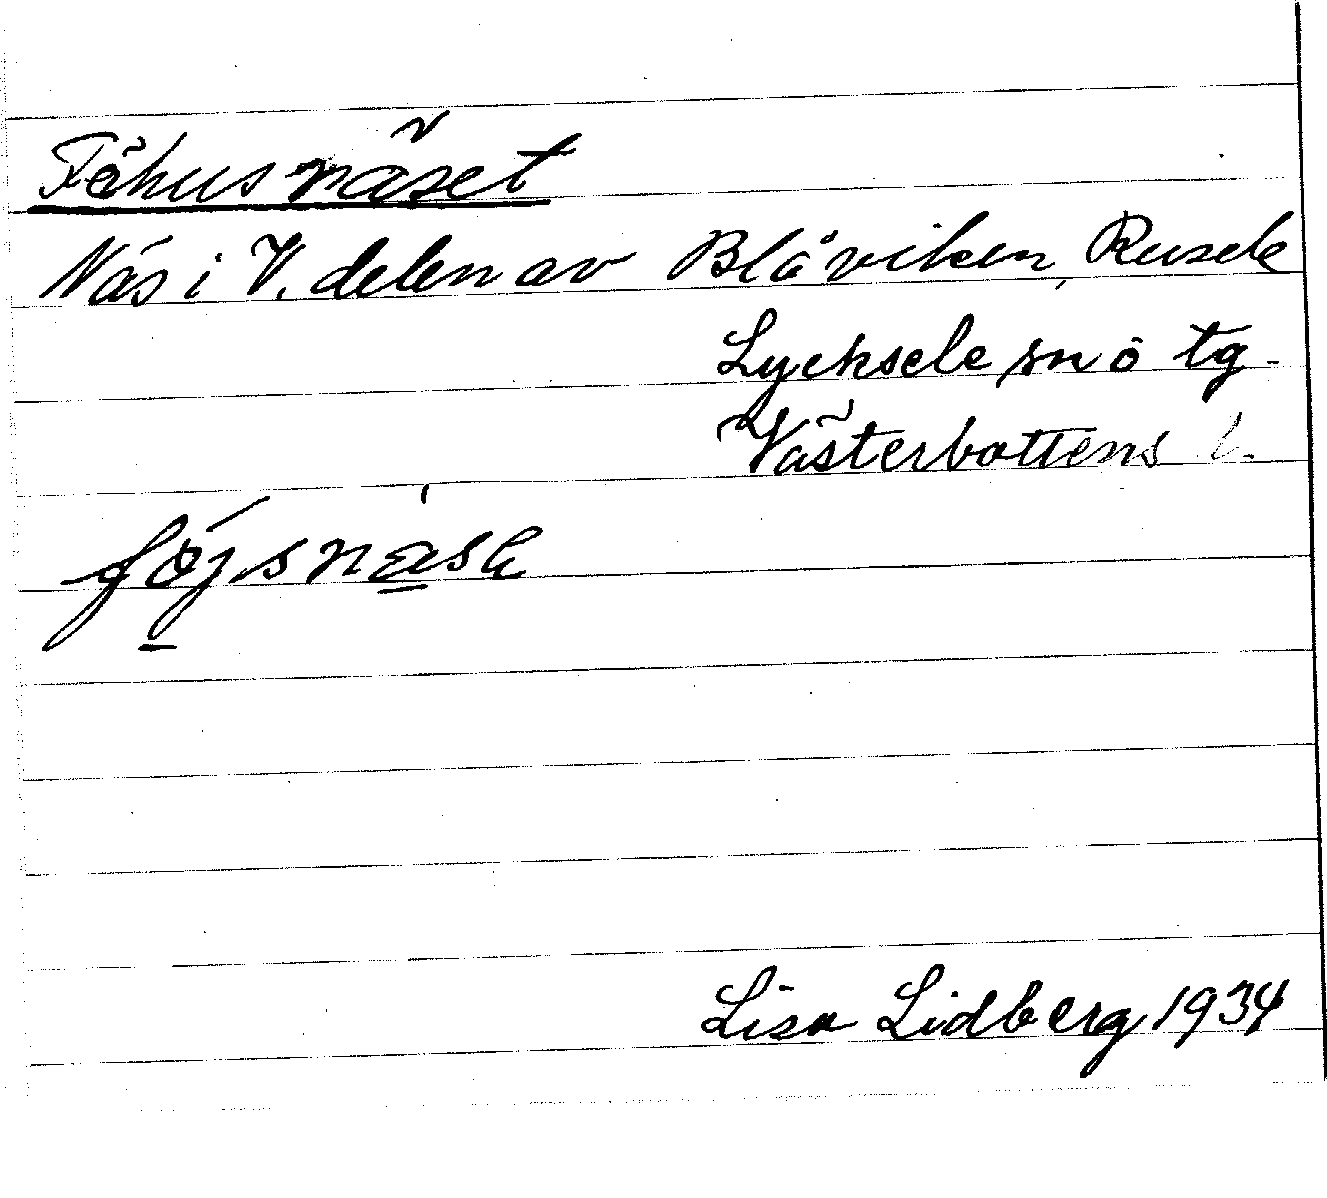 Fähusnäset
Näs i V. delen av Blåviken, Rusele
Lycksele sn o tg.
Västerbottens l.
Lisa Lidberg 1934